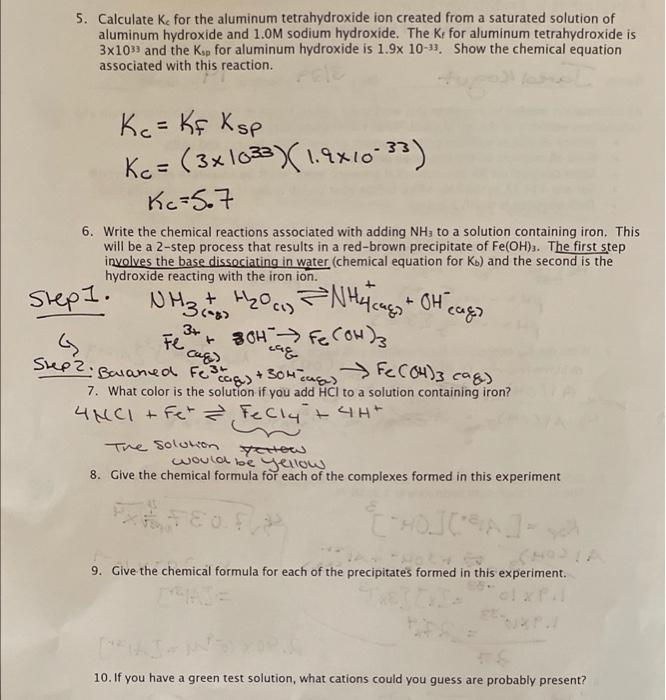 5. Calculate Kc for the aluminum tetrahydroxide ion created from a saturated solution of
aluminum hydroxide and 1.0M sodium hydroxide. The Kf for aluminum tetrahydroxide is
3x10³³ and the Ksp for aluminum hydroxide is 1.9x 10⁻³³. Show the chemical equation
associated with this reaction.
Kc = KF Ksp
Kc = (3x10³³)(1.9x10⁻³³)
Kc=5.7
6. Write the chemical reactions associated with adding NH₃ to a solution containing iron. This
will be a 2-step process that results in a red-brown precipitate of Fe(OH)₃. The first step
involves the base dissociating in water (chemical equation for Kb) and the second is the
hydroxide reacting with the iron ion.
Step 1. NH₃(aq) + H₂O(l) ⇌ NH₄⁺(aq) + OH⁻(aq)
Fe³⁺(aq) + 3OH⁻(aq) → Fe(OH)₃
Step 2: Balanced Fe³⁺(aq) + 3OH⁻(aq) → Fe(OH)₃ (aq)
7. What color is the solution if you add HCl to a solution containing iron?
4HCl + Fe⁺ ⇌ FeCl₄⁻ + 4H⁺
The solution yellow
would be yellow
8. Give the chemical formula for each of the complexes formed in this experiment
9. Give the chemical formula for each of the precipitates formed in this experiment.
10. If you have a green test solution, what cations could you guess are probably present?